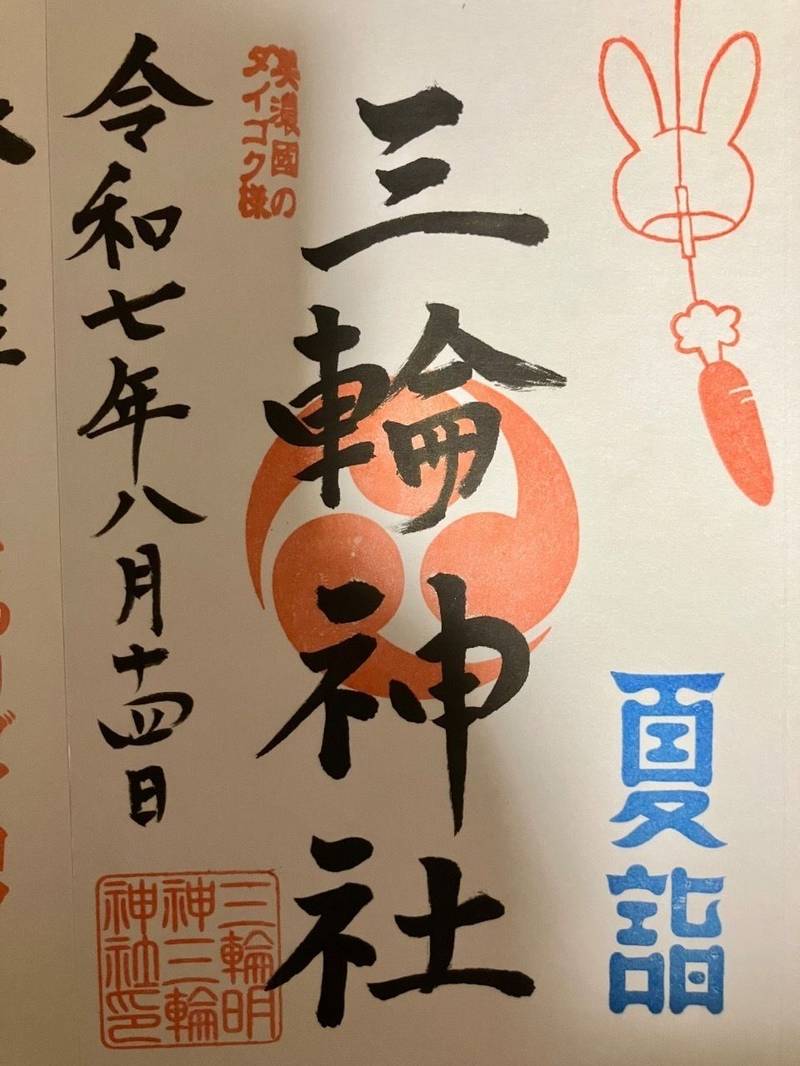 夏詣
三輪神社
美濃國の
ダイコク様
令和七年八月十四日
三輪明
神三輪
神社印